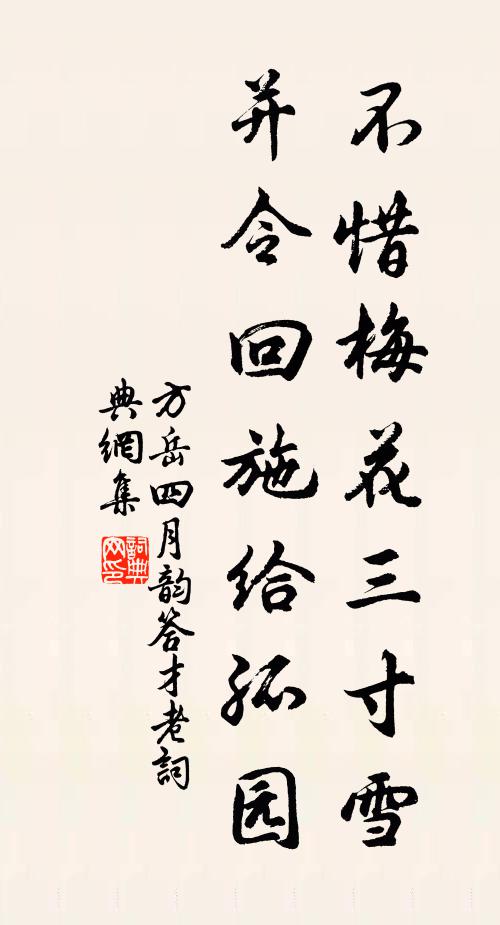 不惜梅花三寸雪
并令回施给孤园
方岳四月韵答才老詞
典網集
詞典網印